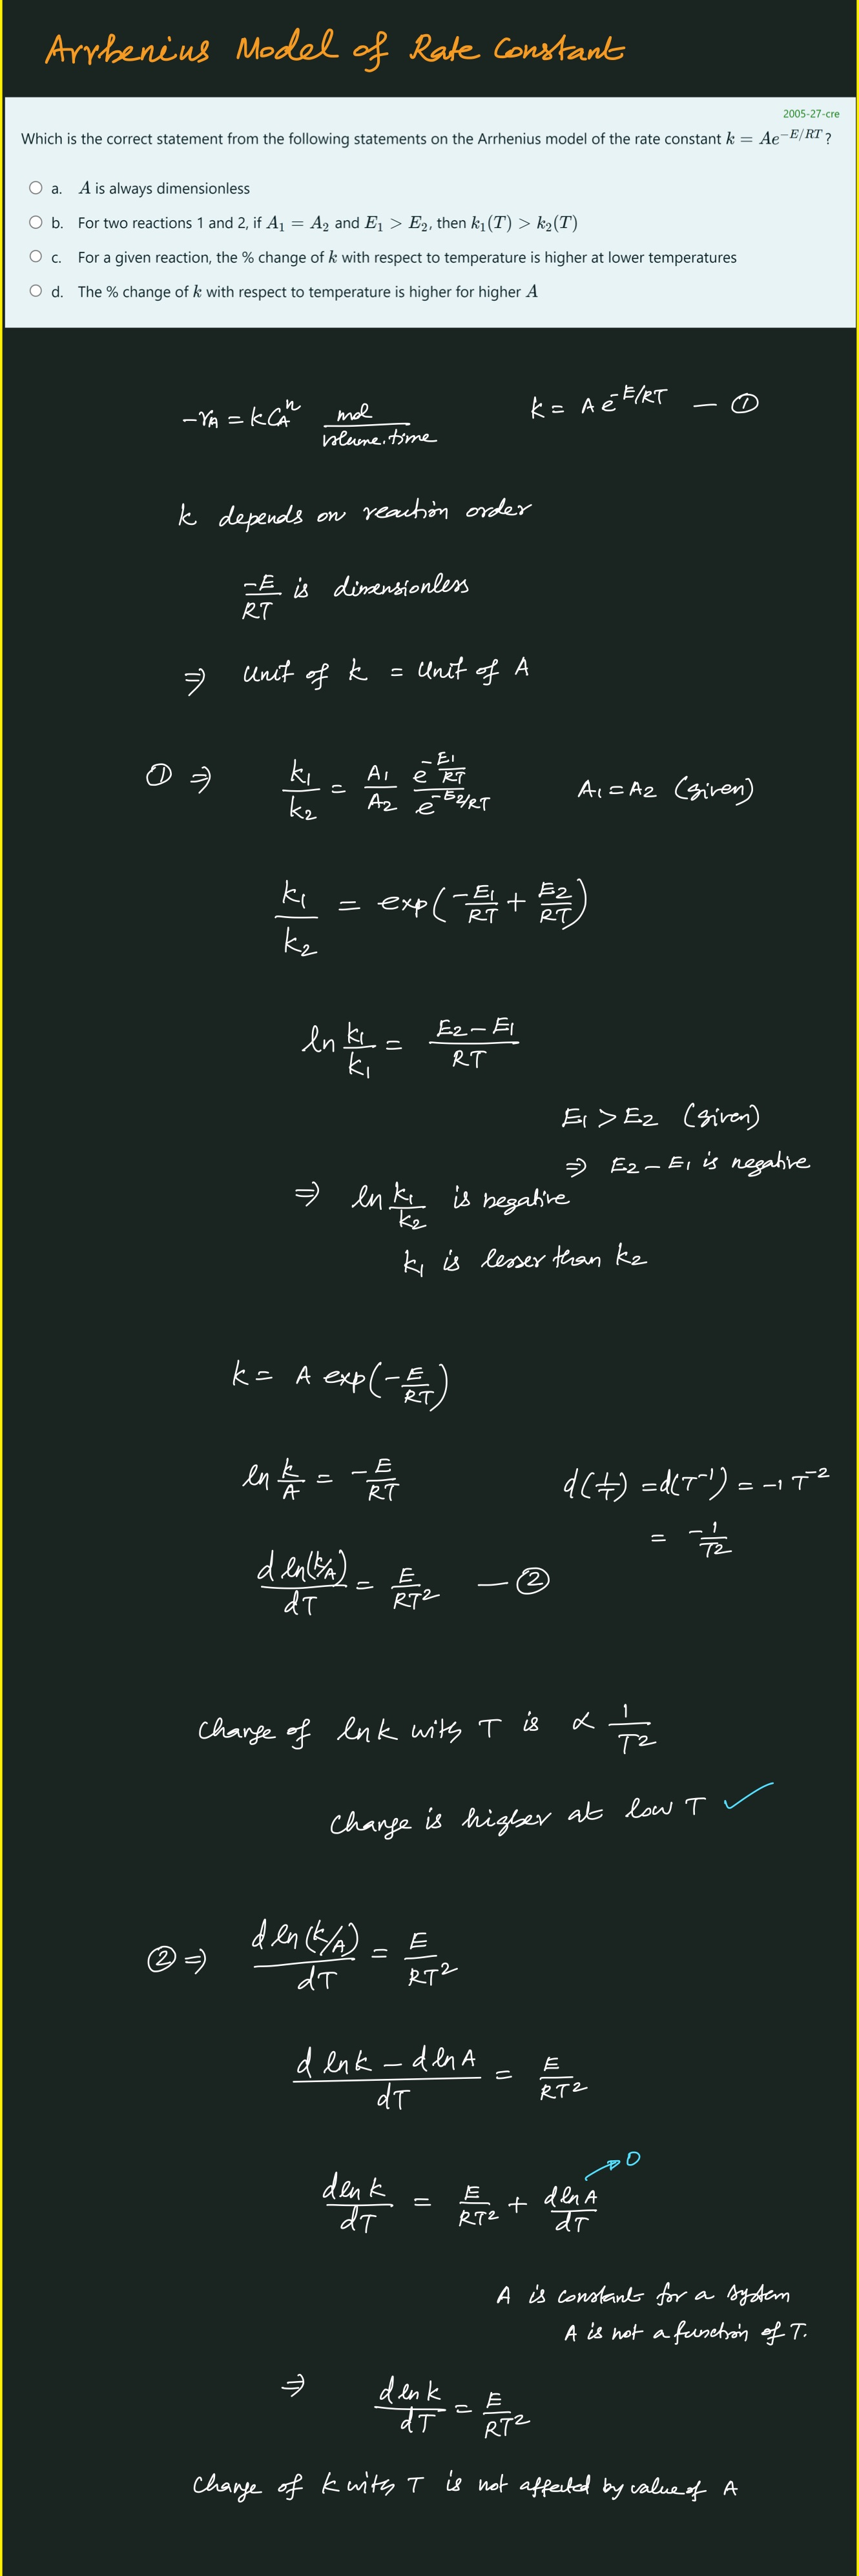 Arrhenius Model of Rate Constant
2005-27-cre
Which is the correct statement from the following statements on the Arrhenius model of the rate constant k = Ae^{-E/RT} ?
a. A is always dimensionless
b. For two reactions 1 and 2, if A₁ = A₂ and E₁ > E₂, then k₁(T) > k₂(T)
c. For a given reaction, the % change of k with respect to temperature is higher at lower temperatures
d. The % change of k with respect to temperature is higher for higher A
-r_A = k C_A^n mol/volume.time k = A e^{-E/RT} — ①
k depends on reaction order
-E/RT is dimensionless
⇒ Unit of k = Unit of A
① ⇒ k₁/k₂ = A₁/A₂ e^{-E₁/RT}/e^{-E₂/RT} A₁ = A₂ (given)
k₁/k₂ = exp(-E₁/RT + E₂/RT)
ln k₁/k₁ = (E₂ - E₁)/RT
E₁ > E₂ (given)
⇒ E₂ - E₁ is negative
⇒ ln k₁/k₂ is negative
k₁ is lesser than k₂
k = A exp(-E/RT)
ln k/A = -E/RT d(1/T) = d(T^{-1}) = -1 T^{-2}
= -1/T²
d ln(k/A)/dT = E/RT² — ②
Change of ln k with T is ∝ 1/T²
Change is higher at low T ✓
② ⇒ d ln(k/A)/dT = E/RT²
(d ln k - d ln A)/dT = E/RT²
d ln k/dT = E/RT² + d ln A/dT → 0
A is constant for a system
A is not a function of T.
⇒ d ln k/dT = E/RT²
Change of k with T is not affected by value of A